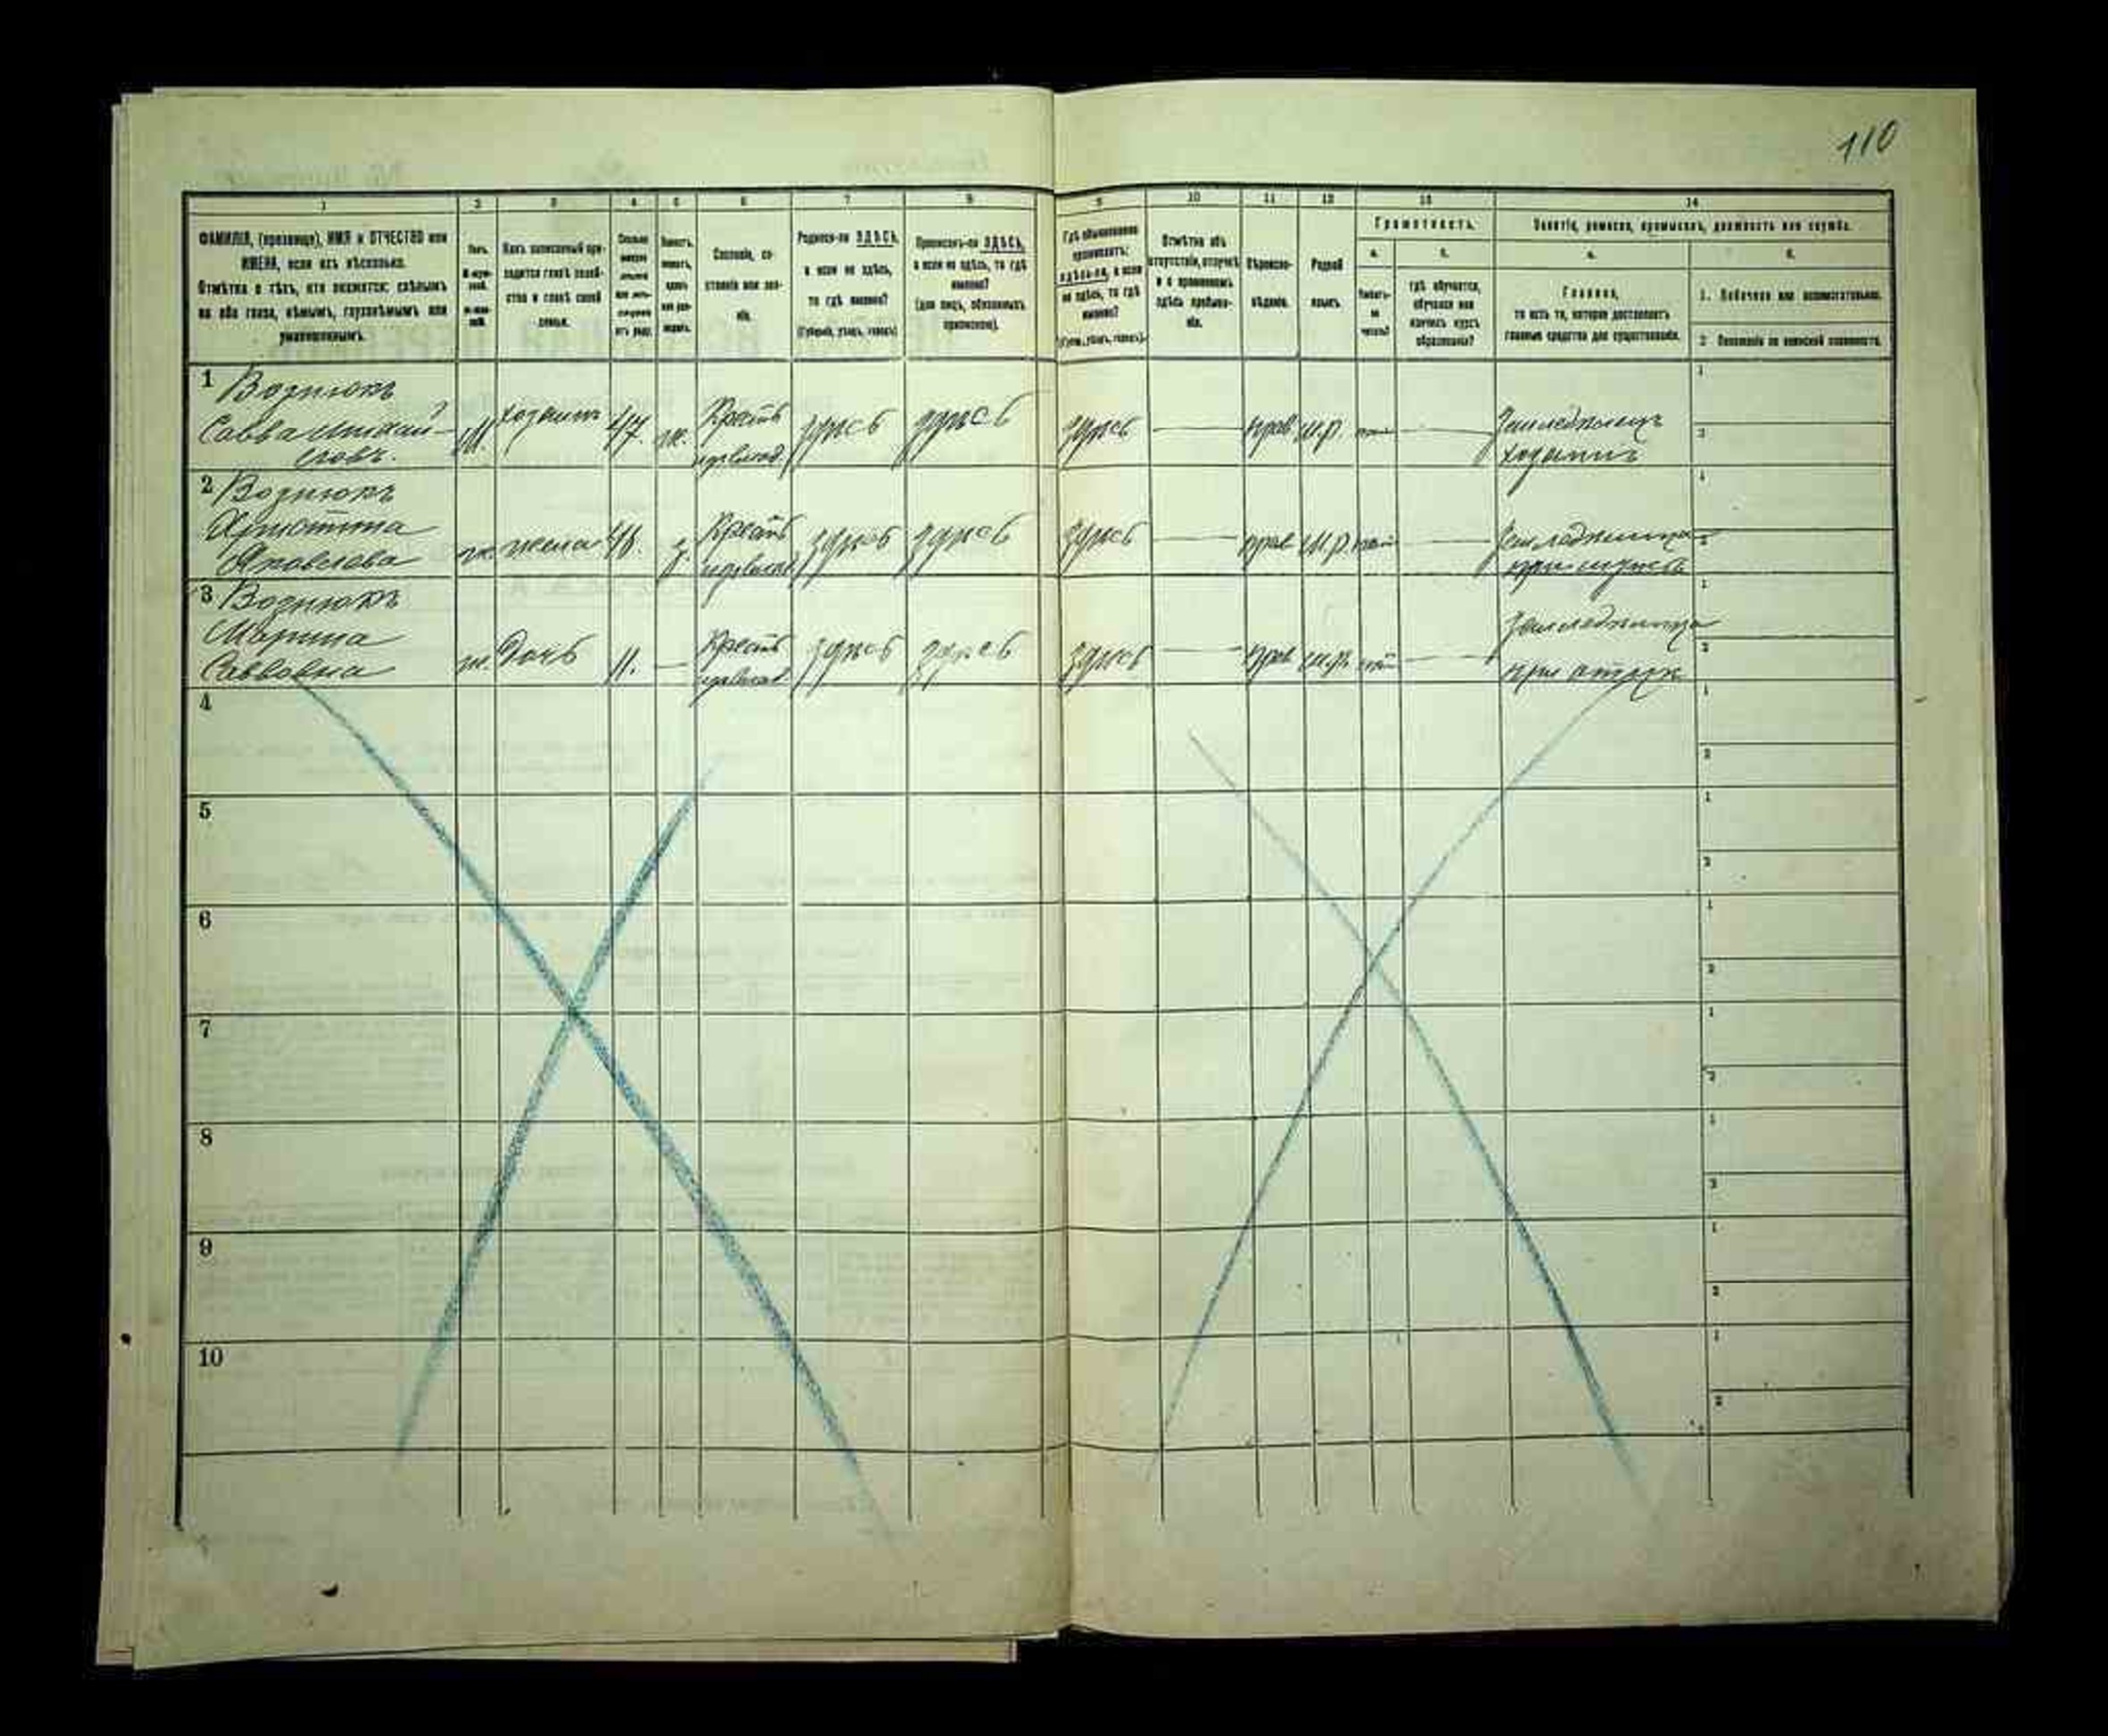 110
1 2 3 4 5 6 7 8 9 10 11 12 13 14
ФАМИЛІЯ, (прозвище), ИМЯ и ОТЧЕСТВО или
ИМЕНА, если ихъ нѣсколько.
Отмѣтка о тѣхъ, кто окажется: слѣпымъ
на оба глаза, нѣмымъ, глухонѣмымъ или
умалишеннымъ.
Полъ.
Какъ записанный при-
ходится главѣ хозяй-
ства и главѣ своей
семьи.
Сословіе, со-
стояніе или зва-
ніе.
Родился-ли ЗДѢСЬ,
а если не здѣсь,
то гдѣ именно?
(Губернія, уѣздъ, городъ)
Приписанъ-ли ЗДѢСЬ,
а если не здѣсь, то гдѣ
именно?
(для лицъ, обязанныхъ
припискою).
Гдѣ обыкновенно
проживаетъ:
здѣсь-ли, а если
не здѣсь, то гдѣ
именно?
(Губерн., уѣздъ, городъ).
Отмѣтка объ
отсутствіи, отлучкѣ
и о временномъ
здѣсь пребыва-
ніи.
Вѣроиспо-
вѣданіе.
Родной
языкъ.
Грамотность.
а.
б.
Умѣетъ-
ли
читать?
гдѣ обучается,
обучался или
кончилъ курсъ
образованія?
Занятіе, ремесло, промыселъ, должность или служба.
а.
б.
Главное,
то есть то, которое доставляетъ
главныя средства для существованія.
1. Побочное или вспомогательное.
2 Положеніе по воинской повинности.
1 Вознюкъ
Савва Михай-
ловъ.
М. хозяинъ 47 ж. Крестъ здѣсь здѣсь здѣсь — прав м.р. — Земледѣлецъ
хозяинъ
2 Вознюкъ
Христина
Яковлева
ж. жена 48. з. Крестъ здѣсь здѣсь здѣсь — прав м.р. — Земледѣлица
3 Вознюкъ
Марина
Саввовна
ж. Дочь 11. — Крестъ здѣсь здѣсь здѣсь — прав м.р. — Земледѣлица
при отцѣ
4
5
6
7
8
9
10